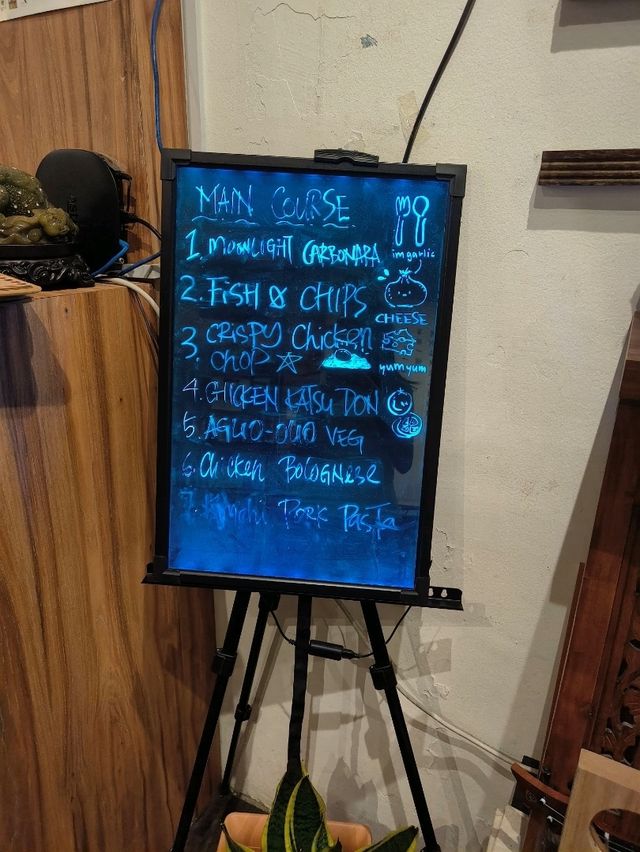 MAIN COURSE
1. MOONLIGHT CARBONARA
im garlic
2. FISH & CHIPS
CHEESE
3. CRISPY Chicken
CHOP
yum yum
4. CHICKEN KATSU DON
5. AGLIO-OLIO VEG
6. Chicken BOLOGNESE
7. Kimchi PORK PASTA